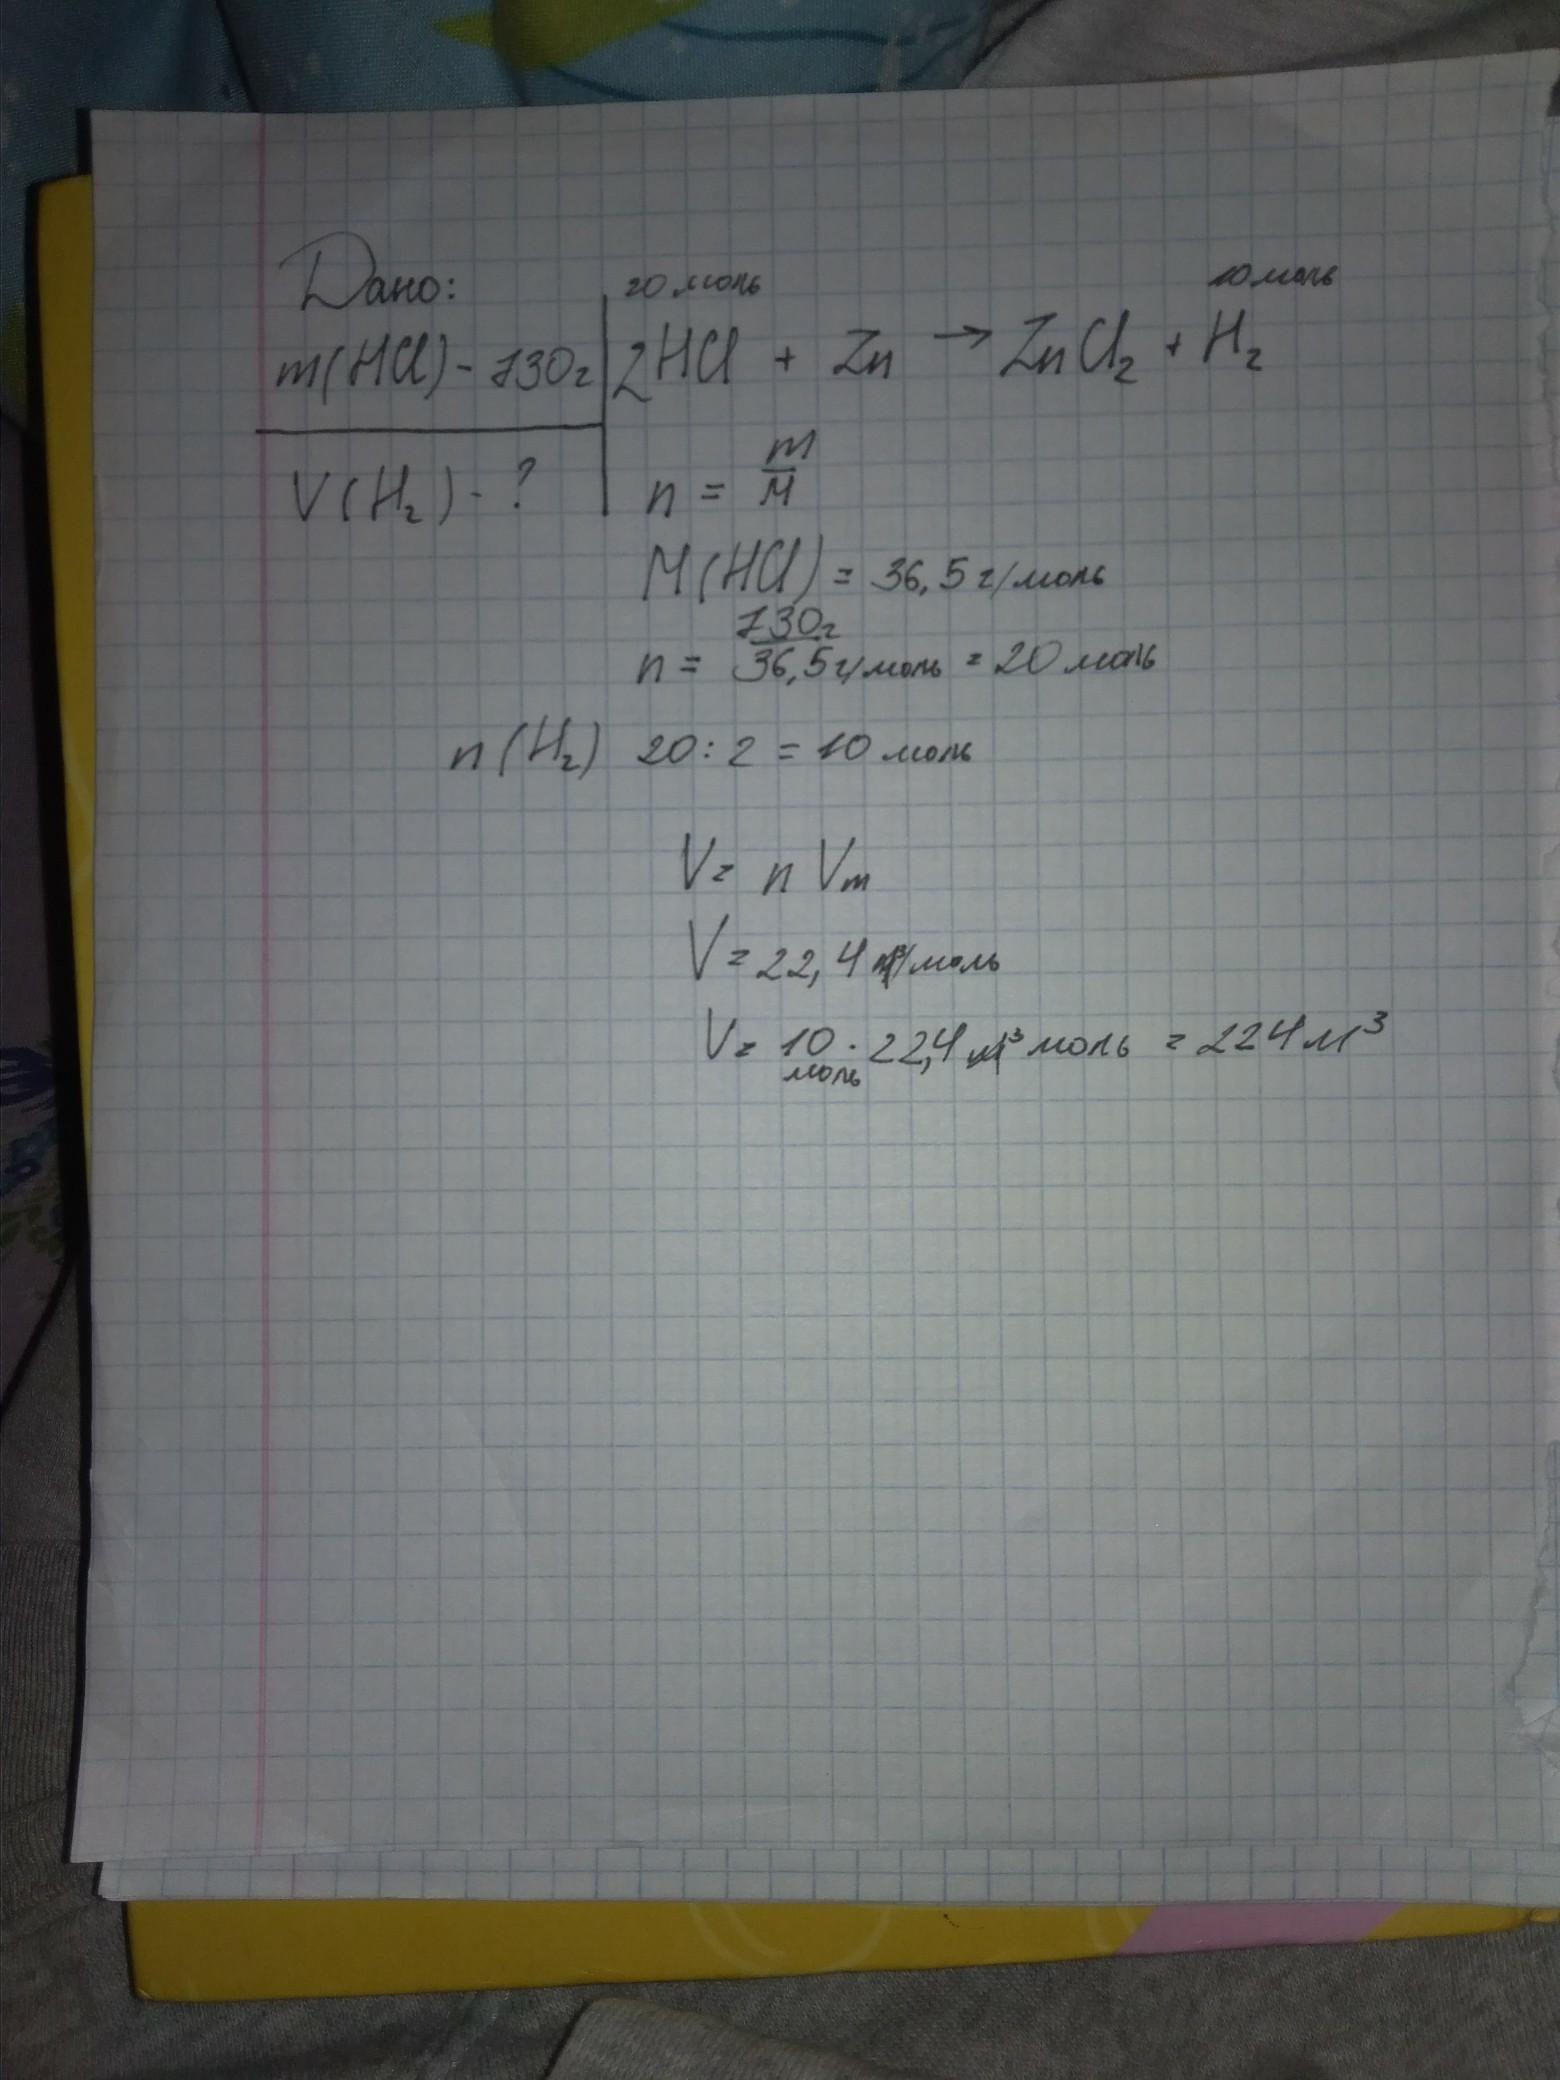 Дано:
20 моль
10 моль
m(HCl) - 730г
2HCl + Zn → ZnCl₂ + H₂
V(H₂) - ?
n = m/M
M(HCl) = 36,5 г/моль
n = 730г/36,5г/моль = 20 моль
n(H₂) 20 : 2 = 10 моль
V = n Vm
V = 22,4 м³/моль
V = 10 моль · 22,4 м³ моль = 224 м³